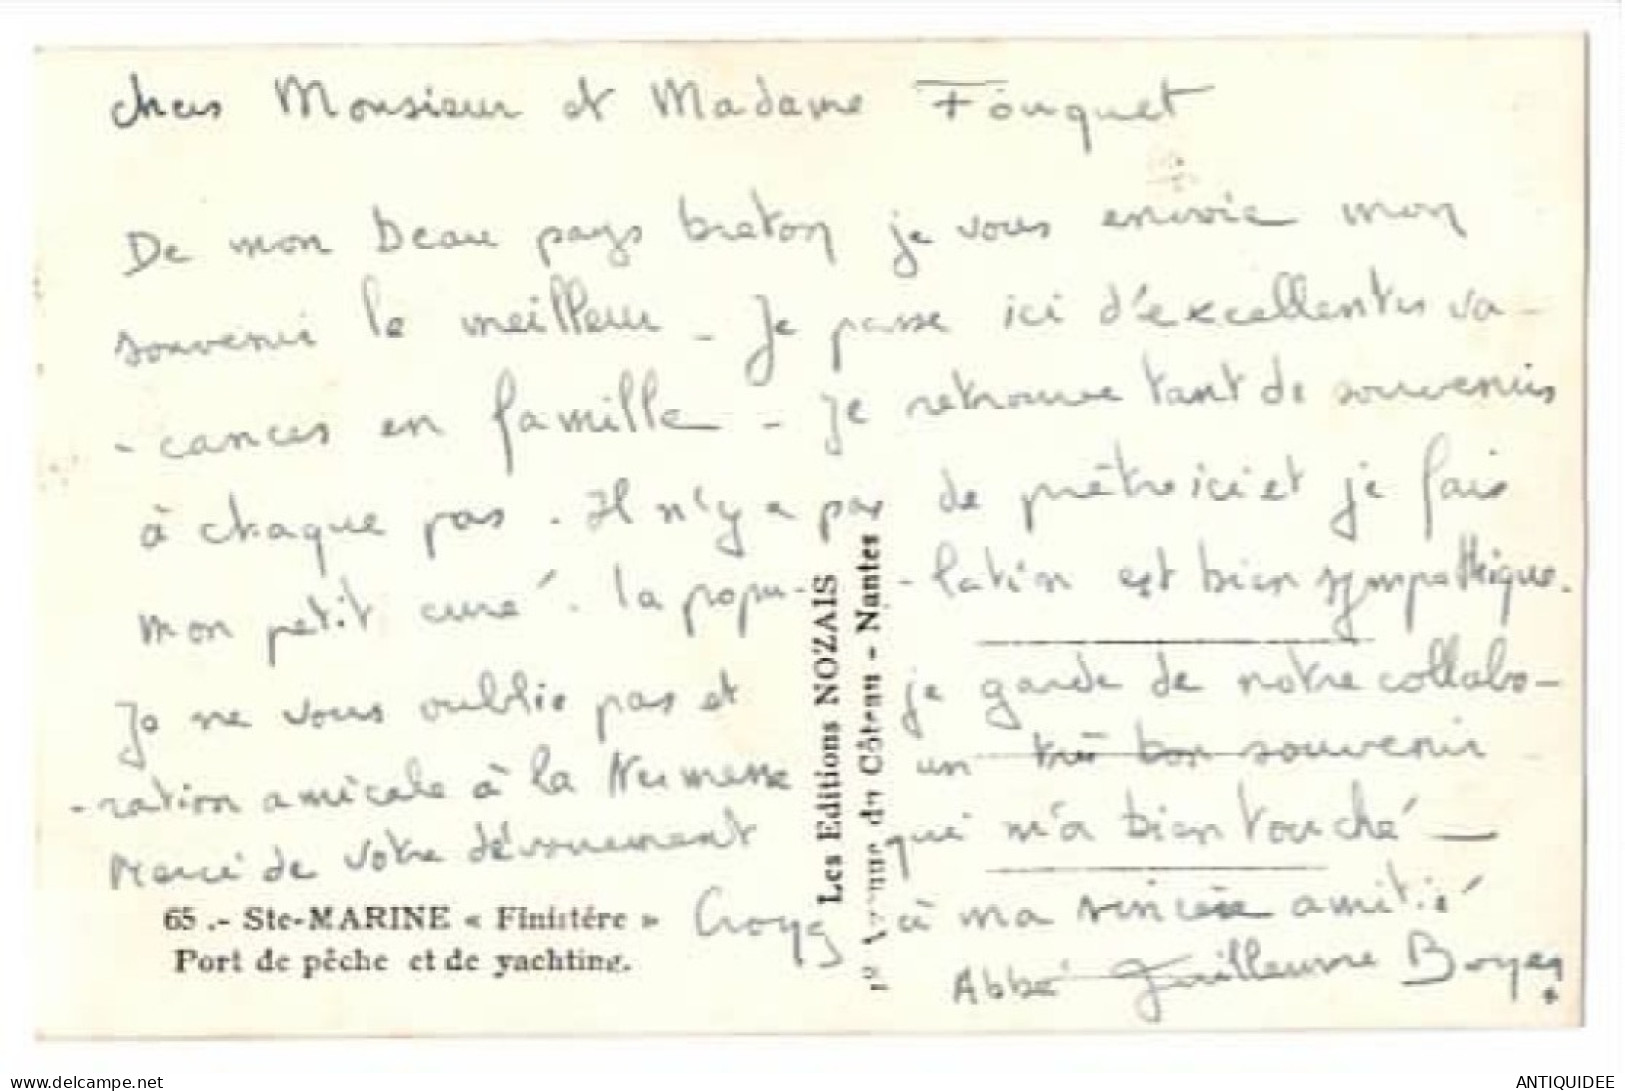 chers Monsieur et Madame Fouquet
De mon beau pays breton je vous envoie mon
souvenir le meilleur - Je passe ici d'excellentes va-
- cances en famille - Je retrouve tant de souvenirs
à chaque pas. Il n'y a pas de prêtre ici et je fais
mon petit curé. la popu- - lation est bien sympathique.
Je ne vous oublie pas et je garde de notre collabo-
- ration amicale à la Kermesse un très bon souvenir
Merci de votre dévouement qui m'a bien touché -
Croyez à ma sincère amitié
Abbé Guillaume Boyer
65.- Ste-MARINE « Finistére »
Port de pêche et de yachting.
Les Editions NOZAIS
Avenue du Côteau - Nantes
www.delcampe.net
ANTIQUIDEE